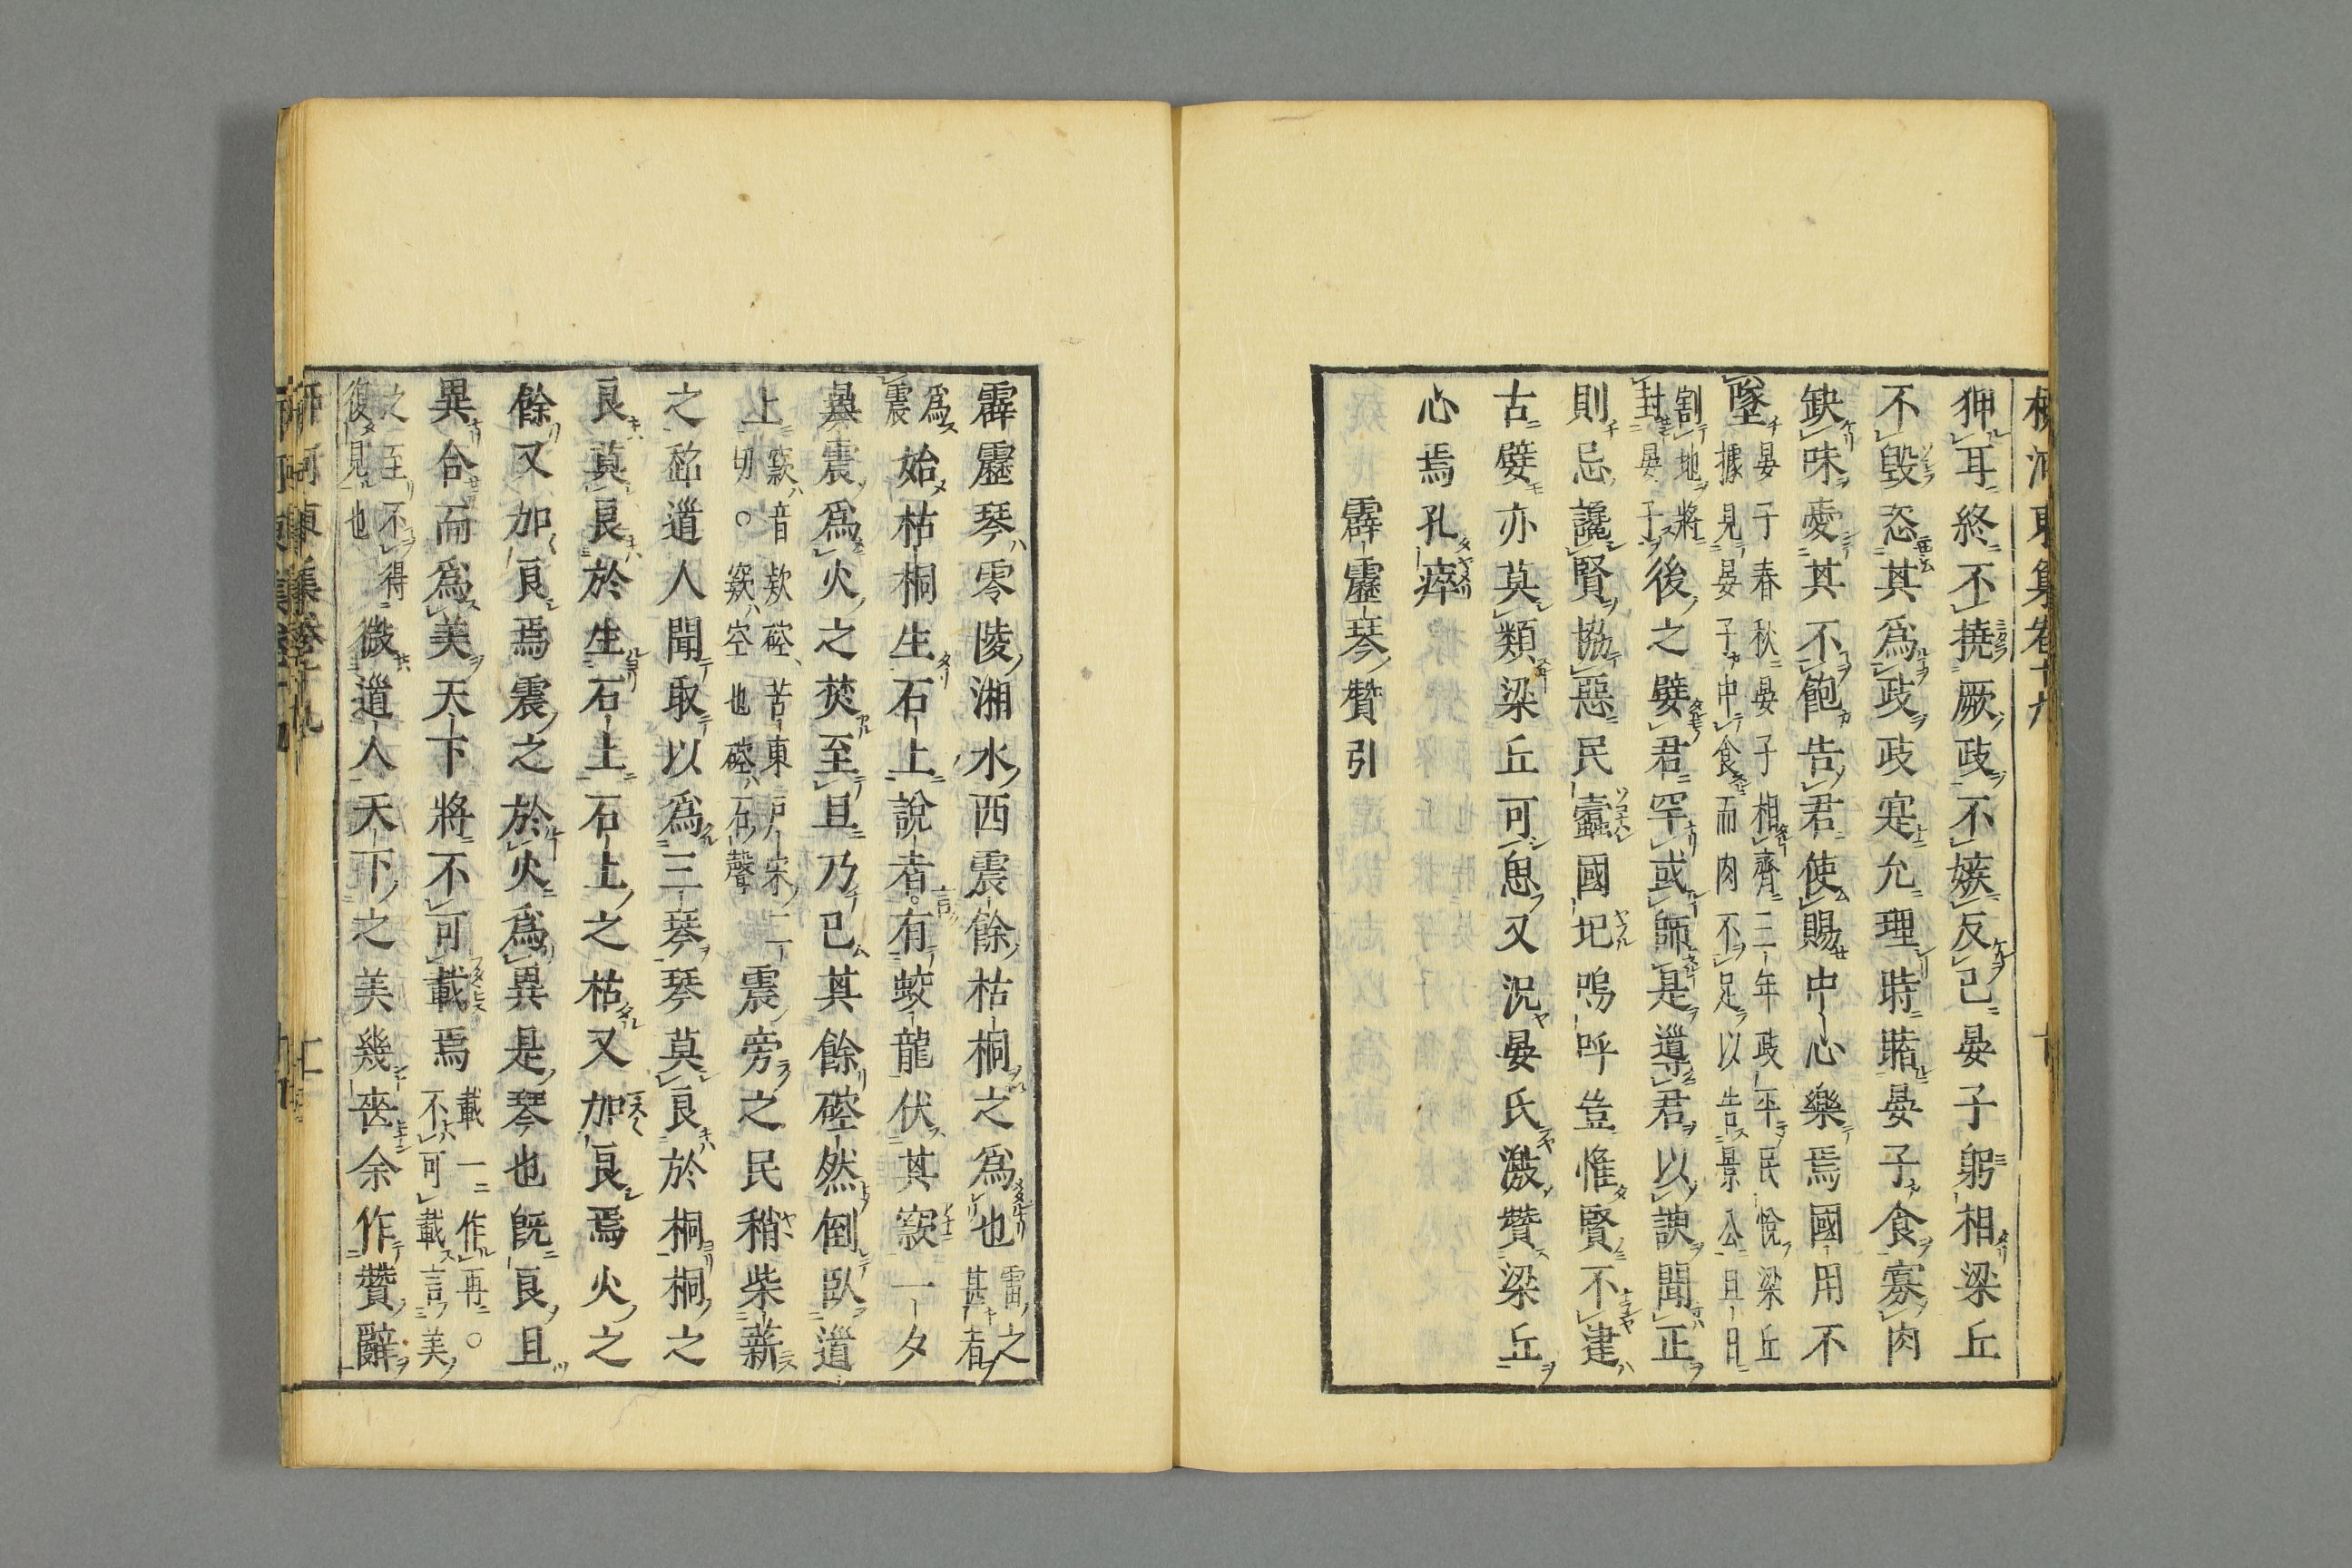 狎耳終不撓厥政不嫉反己晏子躬相梁丘
不毀恣其爲政政寔允理時睹晏子食寡肉
缺味愛其不飽告君使賜中心樂焉國用不
墜晏子春秋晏子相齊三年政平民悅梁丘據見晏子中食而肉不足以告景公旦日
割地將封晏子後之嬖君罕或師是導君以諛聞正
則忌讒賢協惡民蠹國圮嗚呼豈惟賢不逮
古嬖亦莫類梁丘可思又況晏氏激贊梁丘
心焉孔瘁
霹靂琴贊引
霹靂琴零陵湘水西震餘枯桐之爲也雷之甚者
爲震始枯桐生石上說者有蛟龍伏其窾一夕
暴震爲火之焚至旦乃已其餘硿然倒臥道
上窾音欵硿苦東戶宋二切○窾空也硿石聲震旁之民稍柴薪
之超道人聞取以爲三琴琴莫良於桐桐之
良莫良於生石上石上之枯又加良焉火之
餘又加良焉震之於火爲異是琴也旣良且
異合而爲美天下將不可載焉載一作再○不可載言美
之至不得復見也微道人天下之美幾喪余作贊辭